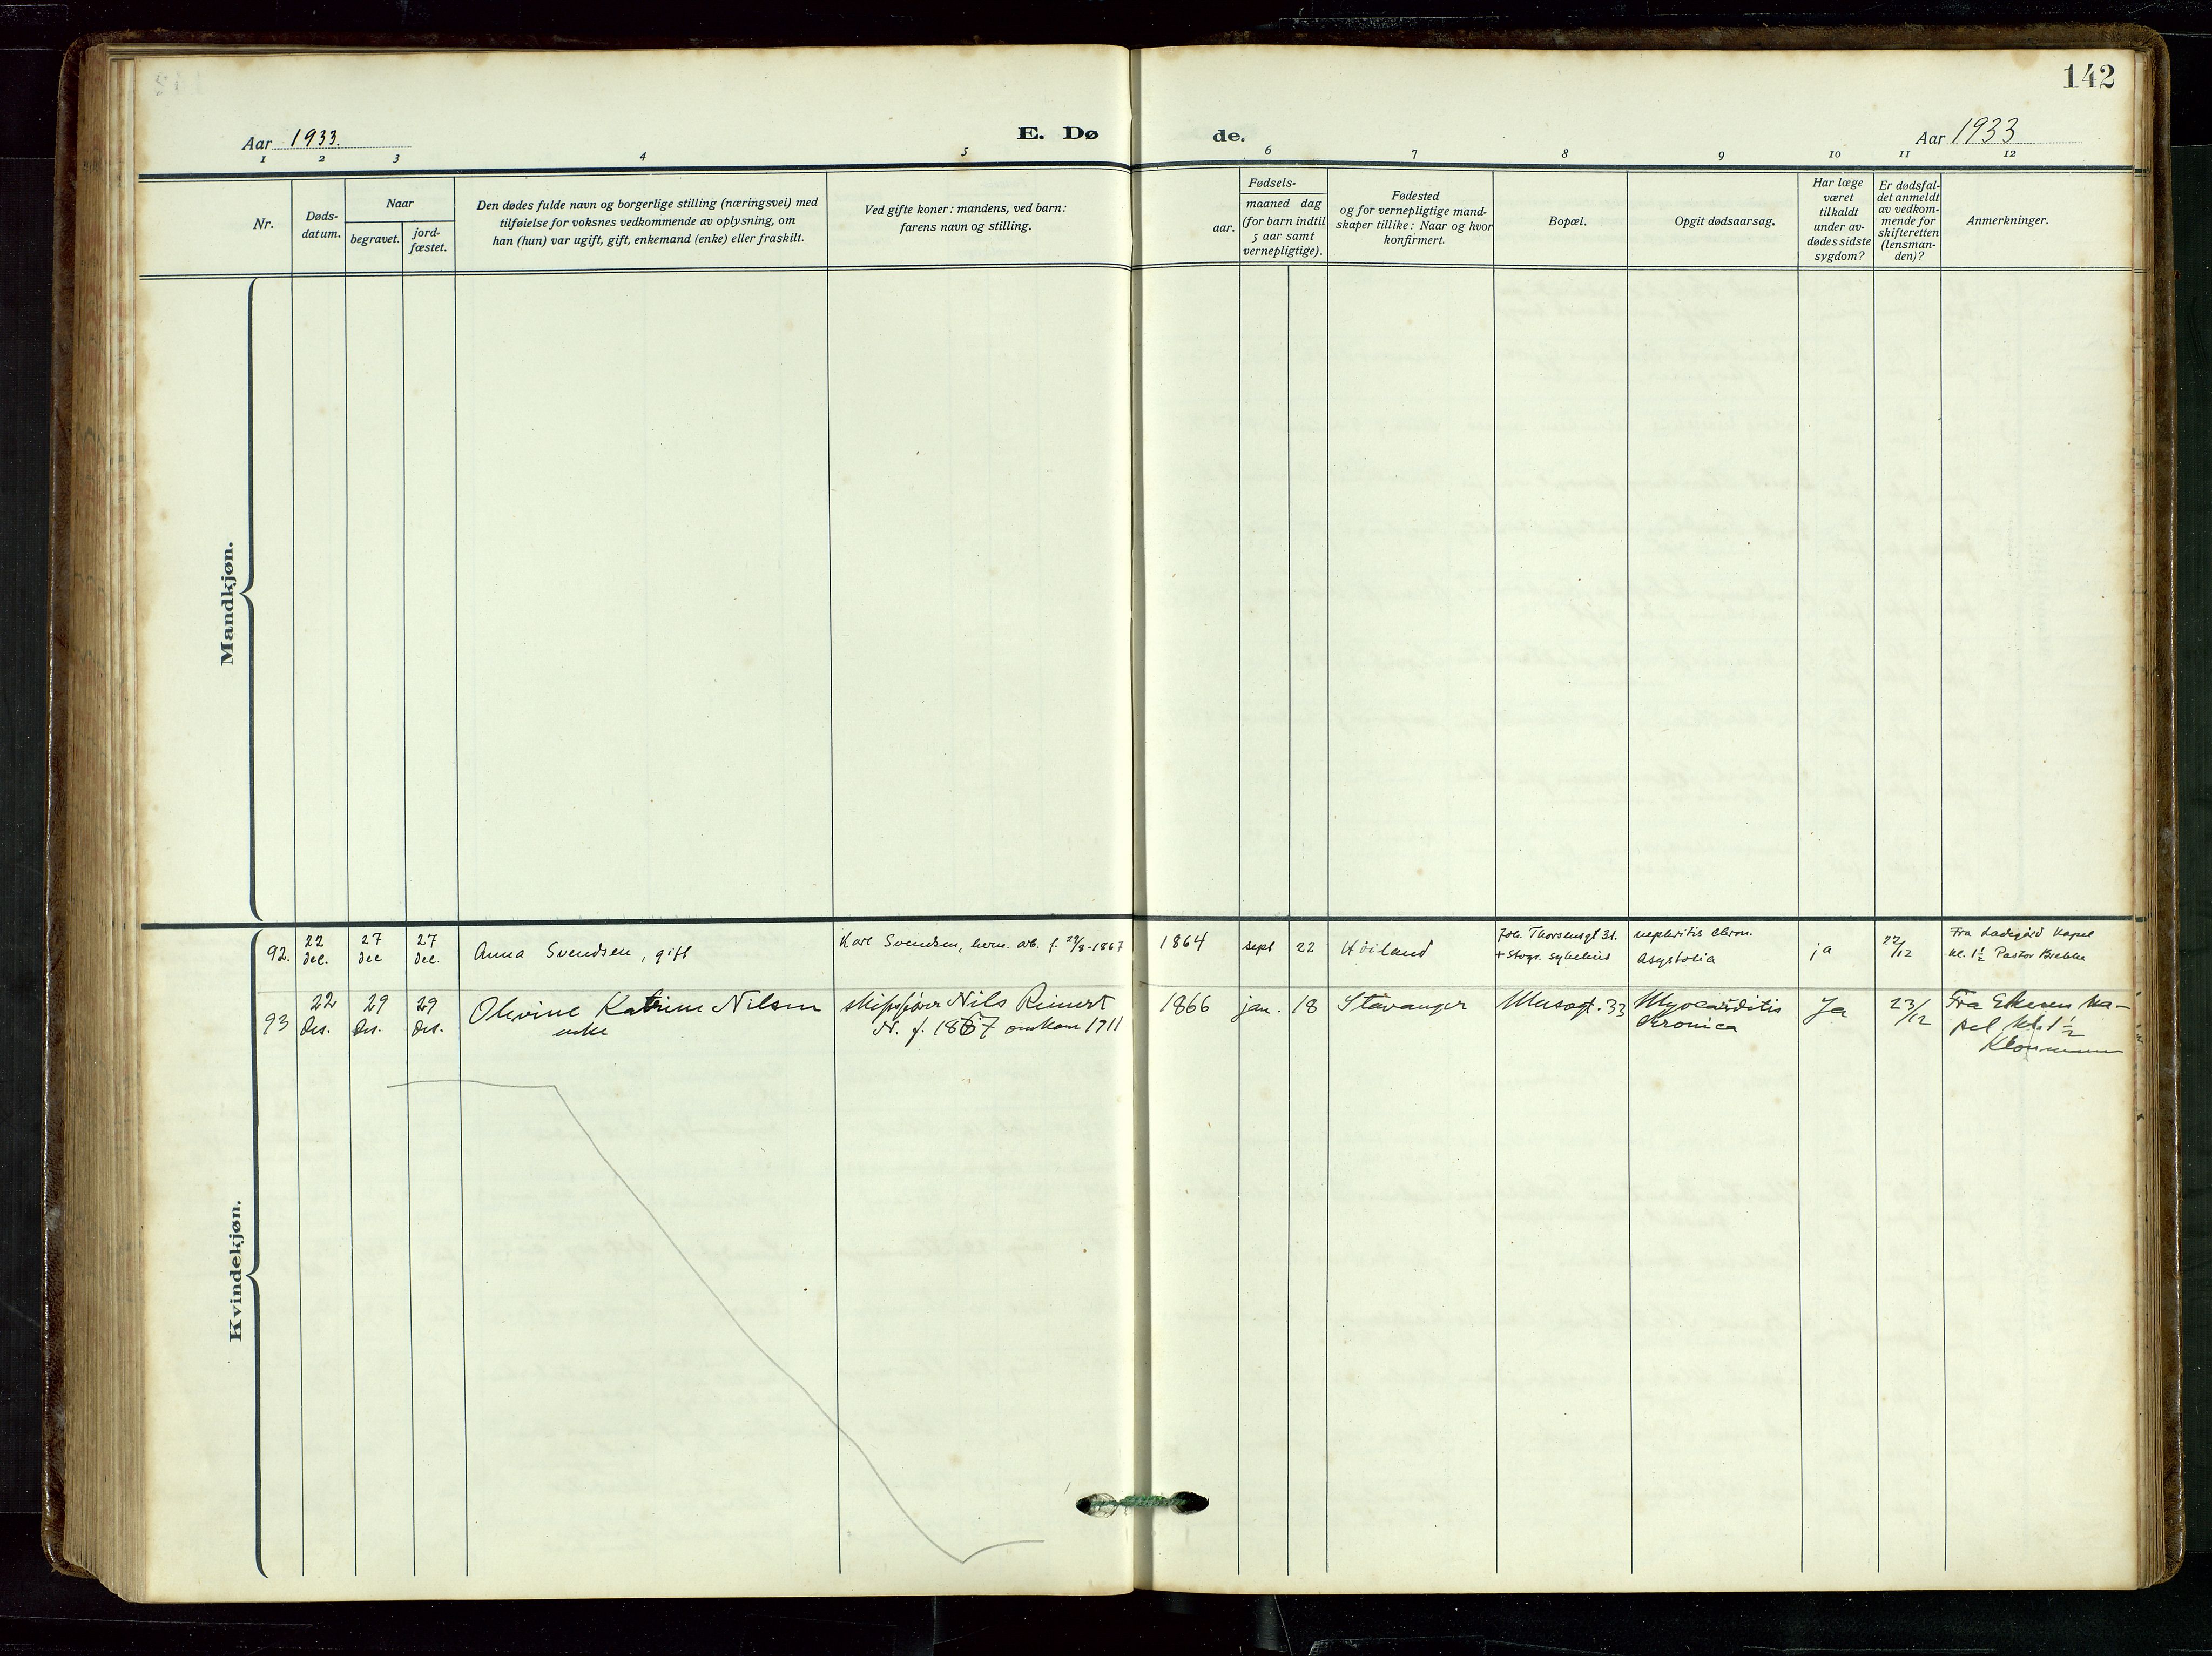 142
Aar 1933.
E. Dø
de.
Aar 1933
1 2 3 4 5 6 7 8 9 10 11 12
Nr.
Døds-
datum.
Naar
begravet.
jord-
fæstet.
Den dødes fulde navn og borgerlige stilling (næringsvei) med
tilføielse for voksnes vedkommende av oplysning, om
han (hun) var ugift, gift, enkemand (enke) eller fraskilt.
Ved gifte koner: mandens, ved barn:
farens navn og stilling.
Fødsels-
aar.
maaned dag
(for barn indtil
5 aar samt
vernepligtige).
Fødested
og for vernepligtige mand-
skaper tillike: Naar og hvor
konfirmert.
Bopæl.
Opgit dødsaarsag.
Har læge
været
tilkaldt
under av-
dødes sidste
sygdom?
Er dødsfal-
det anmeldt
av vedkom-
mende for
skifteretten
(lensman-
den)?
Anmerkninger.
Mandkjøn.
Kvindekjøn.
92.
22
dec.
27
dec
27
dec.
Anna Svendsen, gift
Karl Svendsen, herm. arb. f. 29/8-1867
1864
sept
22
Höiland
Joh. Thorsensgt 31.
+ Stvgr. sykehus
nephritis chron.
asystolia
ja
22/12
Fra Ladegård kapel
kl. 1½ Pastor
93
22
Des.
29
Des.
29
Des.
Olevine Katrine Nilsen
enke
skipsfører Nils Reinert
N. f. 1867 omkom 1911
1866
jan.
18
Stavanger
Musegt. 33
Myocarditis
Kronica
Ja
23/12
Fra Eikenes ka-
pel kl. 1½